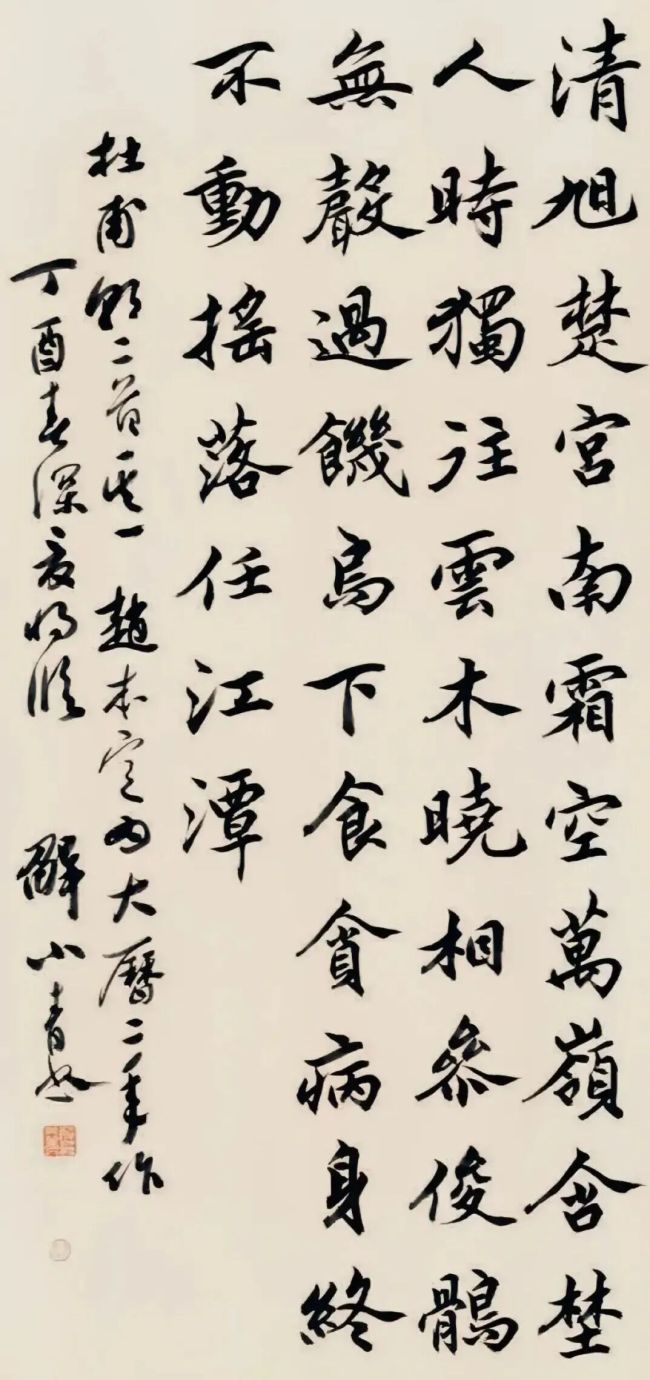 清旭楚宮南霜空萬嶺含埜
人時獨往雲木曉相參俊鶻
無聲過饑烏下食貪病身終
不動搖落任江潭
杜甫朝二首其一 趙本定為大曆二年作
丁酉春深 解小青